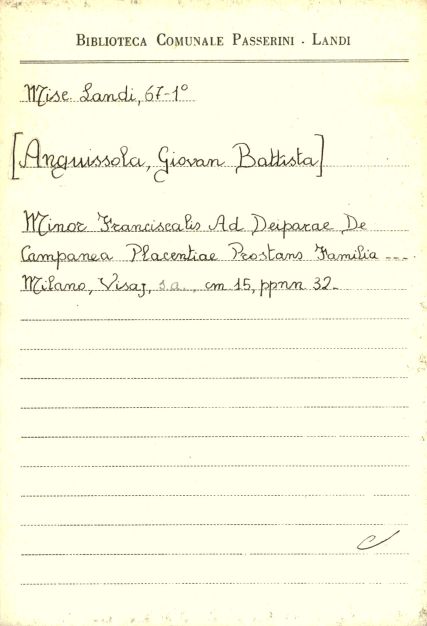 BIBLIOTECA COMUNALE PASSERINI - LANDI
Misc. Landi, 67-1°
[Anguissola, Giovan Battista]
Minor Franciscalis Ad Deiparae De
Campanea Placentiae Prostans Familia ---
Milano, Visaj, s.a., cm 15, ppnn 32.